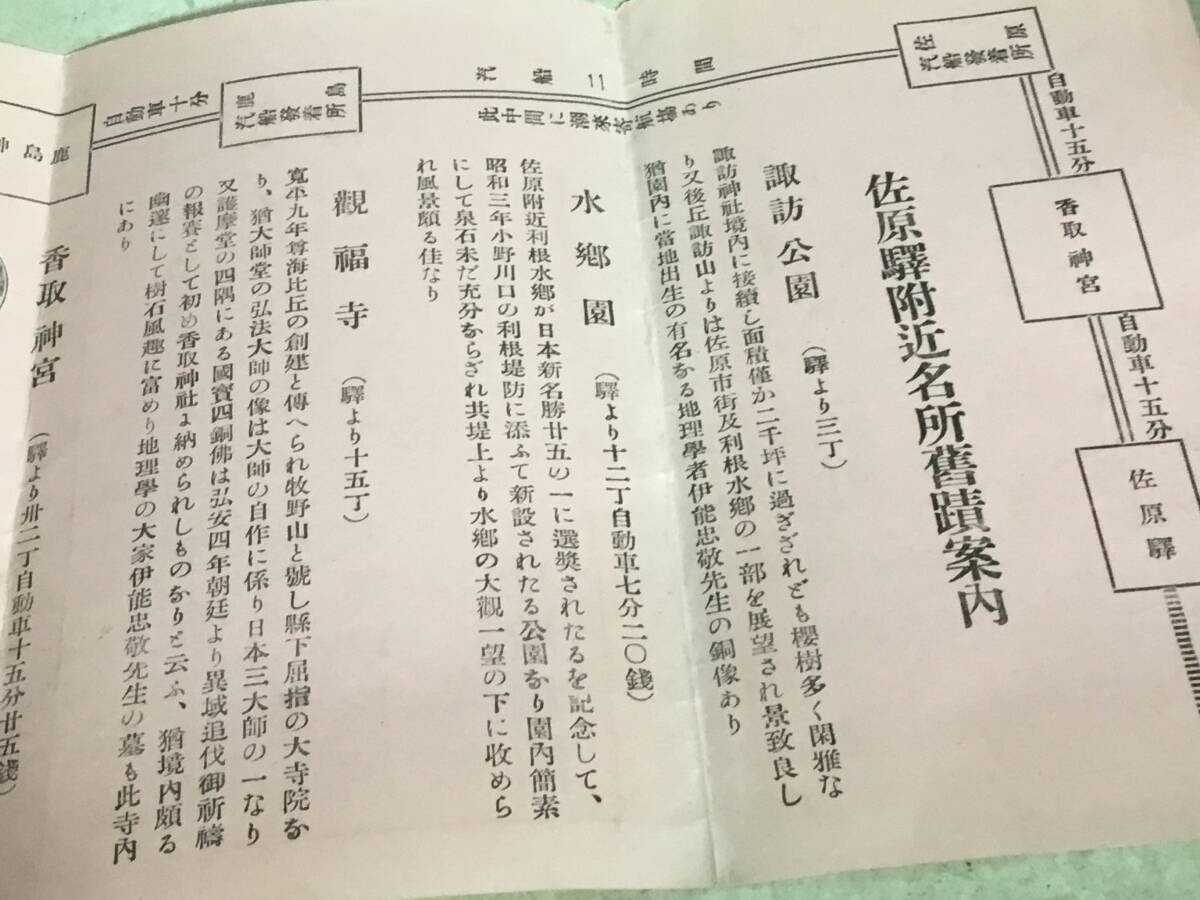 佐原驛
自動車十五分
香取神宮
自動車十五分
佐原
汽船發着所
汽船二時間
此中間に潮來寄航場あり
鹿島
汽船發着所
自動車十分
鹿島神
佐原驛附近名所舊蹟案內
諏訪公園 (驛より三丁)
諏訪神社境內に接續し面積僅か二千坪に過ぎざれども櫻樹多く閑雅な
り又後丘諏訪山よりは佐原市街及利根水鄕の一部を展望され景致良し
猶園內に當地出生の有名なる地理學者伊能忠敬先生の銅像あり
水鄕園 (驛より十二丁自動車七分二〇錢)
佐原附近利根水鄕が日本新名勝廿五の一に選奬されたるを記念して、
昭和三年小野川口の利根堤防に添ふて新設されたる公園なり園內簡素
にして泉石未だ充分ならざれ共堤上より水鄕の大觀一望の下に收めら
れ風景頗る佳なり
觀福寺 (驛より十五丁)
寬平九年尊海比丘の創建と傳へられ牧野山と號し縣下屈指の大寺院な
り、猶大師堂の弘法大師の像は大師の自作に係り日本三大師の一なり
又護摩堂の四隅にある國寶四銅佛は弘安四年朝廷より異域追伐御祈禱
の報賽として初め香取神社に納められしものなりと云ふ、猶境內頗る
幽邃にして樹石風趣に富めり地理學の大家伊能忠敬先生の墓も此寺內
にあり
香取神宮 (驛より卅二丁自動車十五分廿五錢)